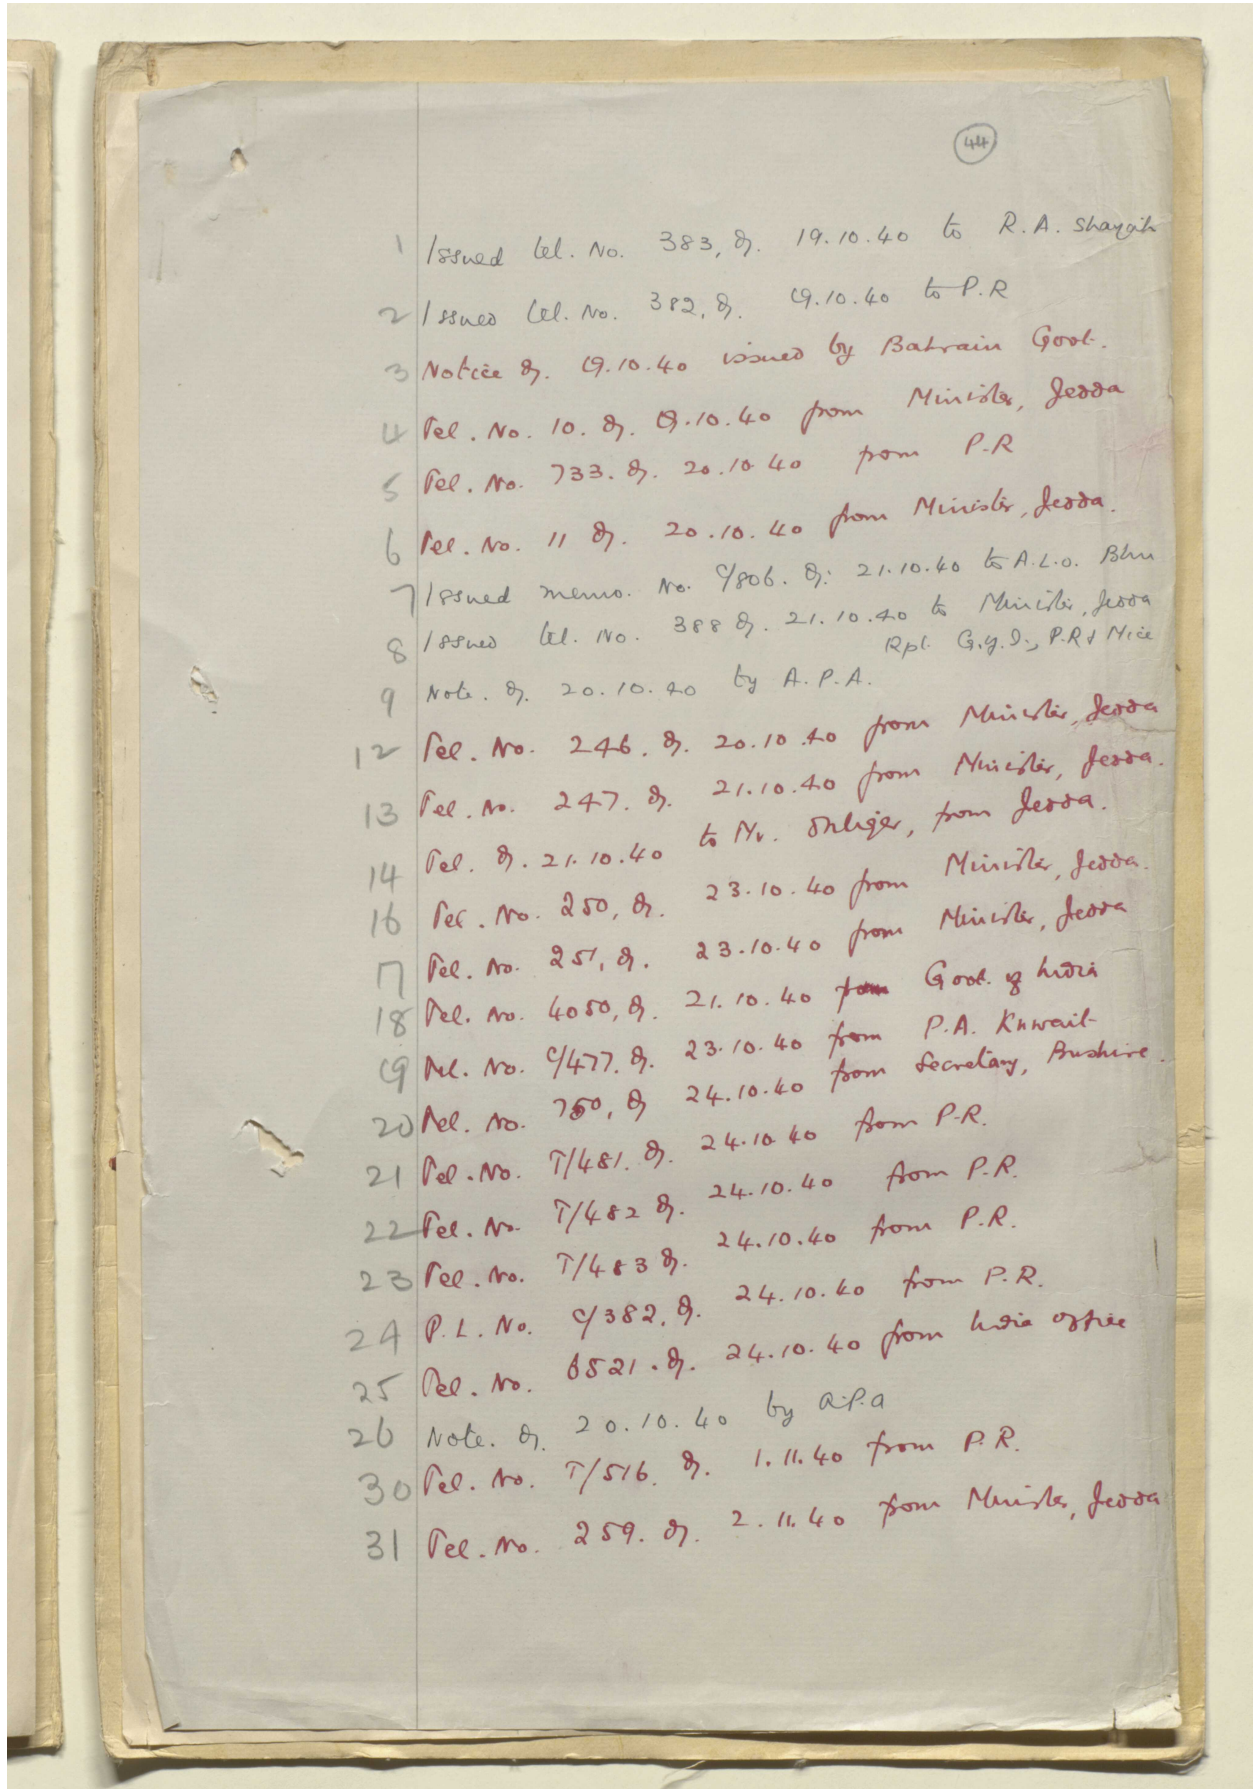 44
1 Issued tel. No. 383, d/. 19.10.40 to R.A. Sharjah
2 Issued tel. No. 382, d/. 19.10.40 to P.R
3 Notice d/. 19.10.40 issued by Bahrain Govt.
4 Tel. No. 10. d/. 19.10.40 from Minister, Jedda
5 Tel. No. 733. d/. 20.10.40 from P.R
6 Tel. No. 11 d/. 20.10.40 from Minister, Jedda.
7 Issued memo. No. C/806. d/: 21.10.40 to A.L.O. Bhn
8 Issued tel. No. 388 d/. 21.10.40 to Minister, Jedda
Rpt. G.y.I., P.R &
9 Note. d/. 20.10.40 by A.P.A.
12 Tel. No. 246. d/. 20.10.40 from Minister, Jedda
13 Tel. No. 247. d/. 21.10.40 from Minister, Jedda.
14 Tel. d/. 21.10.40 to Mr. from Jedda.
16 Tel. No. 250, d/. 23.10.40 from Minister, Jedda.
17 Tel. No. 251, d/. 23.10.40 from Minister, Jedda
18 Tel. No. 4050, d/. 21.10.40 from Govt. of India
19 Tel. No. C/477. d/. 23.10.40 from P.A. Kuwait
20 Tel. No. 750, d/ 24.10.40 from Secretary, Bushire.
21 Tel. No. T/481. d/. 24.10.40 from P.R.
22 Tel. No. T/482 d/. 24.10.40 from P.R.
23 Tel. No. T/483 d/. 24.10.40 from P.R.
24 P.L. No. C/382, d/. 24.10.40 from P.R.
25 Tel. No. 6521. d/. 24.10.40 from India office
26 Note. d/. 20.10.40 by A.P.A
30 Tel. No. T/516. d/. 1.11.40 from P.R.
31 Tel. No. 259. d/. 2.11.40 from Minister, Jedda